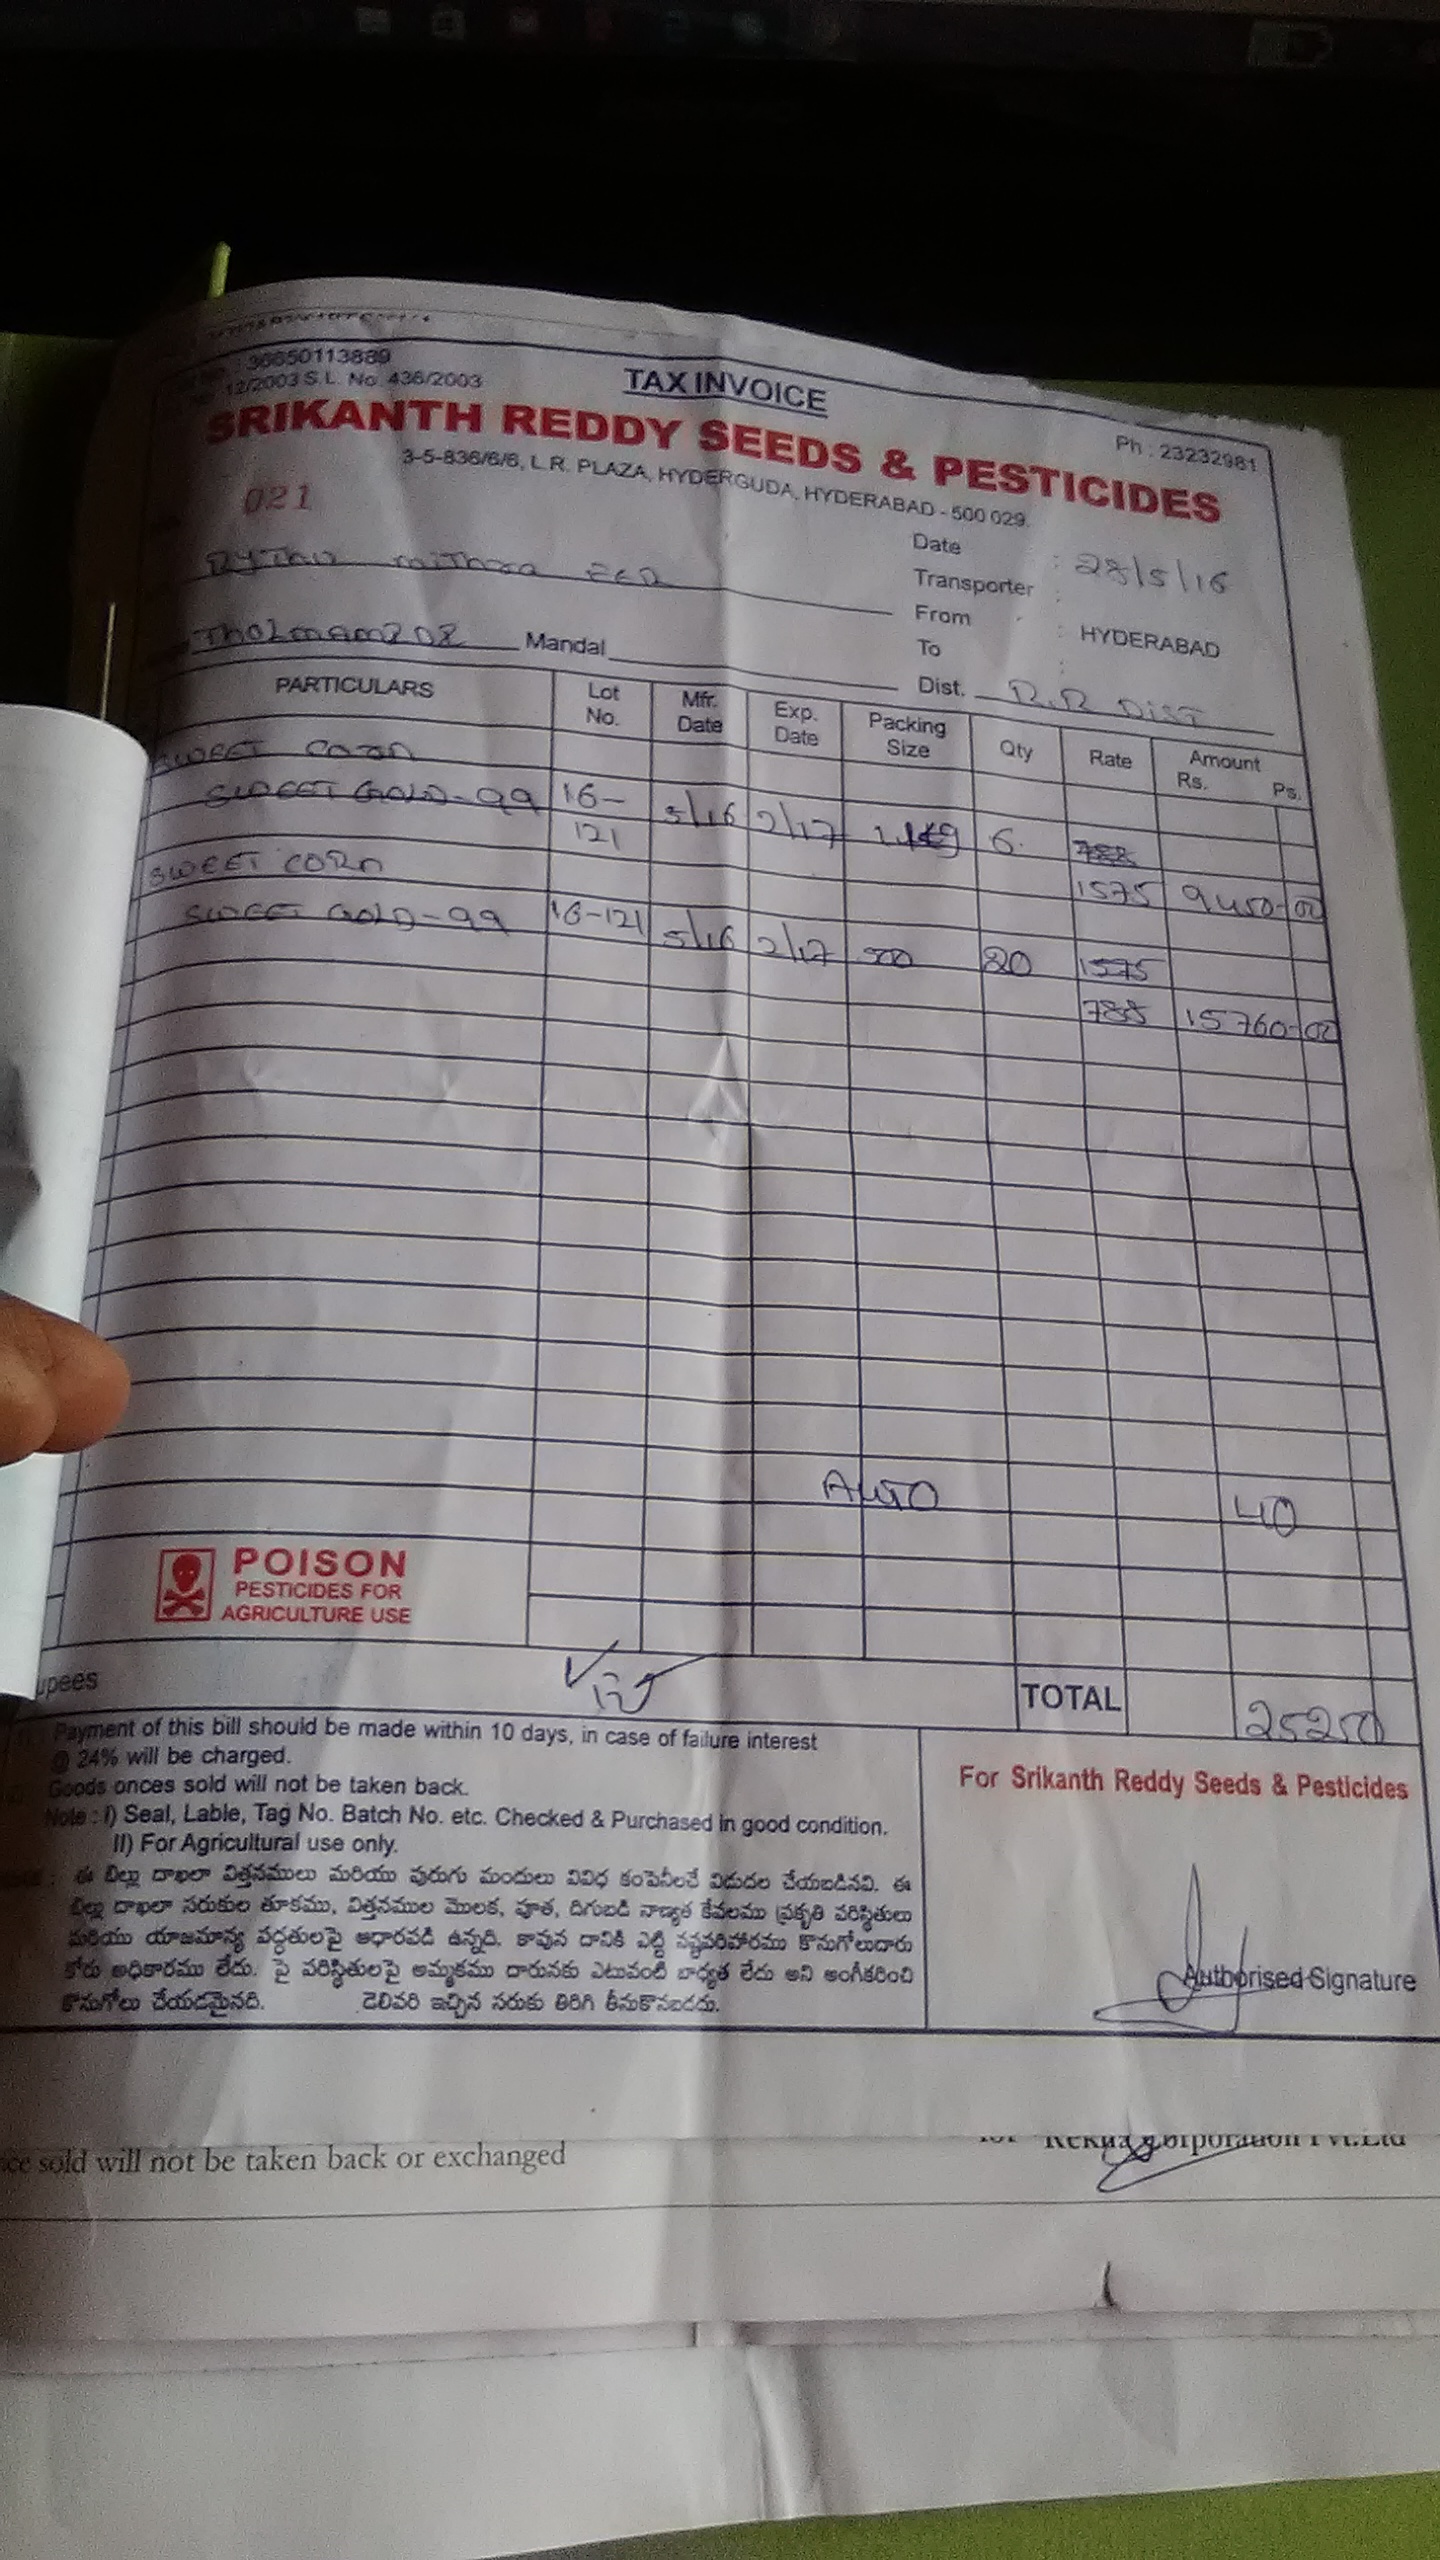 36650113889
12/2003 S.L. No. 436/2003
TAX INVOICE
Ph : 23232981
SRIKANTH REDDY SEEDS & PESTICIDES
3-5-836/6/6, L.R. PLAZA, HYDERGUDA, HYDERABAD - 500 029.
021
Date : 28/5/16
Transporter :
From : HYDERABAD
To :
Mandal
Dist. R.R DIST
PARTICULARS Lot No. Mfr. Date Exp. Date Packing Size Qty Rate Amount Rs. Ps.
SWEET CORN
SWEET GOLD-99 16-121 5/16 2/17 6 788
1575 9450-00
SWEET CORN
SWEET GOLD-99 16-121 5/16 2/17 500 20 1575
788 15760-00
AUTO 40
POISON
PESTICIDES FOR
AGRICULTURE USE
upees
TOTAL 25250
Payment of this bill should be made within 10 days, in case of failure interest
@ 24% will be charged.
Goods onces sold will not be taken back.
Note : I) Seal, Lable, Tag No. Batch No. etc. Checked & Purchased in good condition.
II) For Agricultural use only.
For Srikanth Reddy Seeds & Pesticides
ఈ బిల్లు దాఖలా విత్తనములు మరియు పురుగు మందులు వివిధ కంపెనీలచే విడుదల చేయబడినవి. ఈ
బిల్లు దాఖలా సరుకుల తూకము, విత్తనముల మొలక, పూత, దిగుబడి నాణ్యత కేవలము ప్రకృతి పరిస్థితులు
మరియు యాజమాన్య పద్ధతులపై ఆధారపడి ఉన్నది. కావున దానికి ఎట్టి నష్టపరిహారము కొనుగోలుదారు
కోరు అధికారము లేదు. పై పరిస్థితులపై అమ్మకము దారునకు ఎటువంటి బాధ్యత లేదు అని అంగీకరించి
కొనుగోలు చేయడమైనది. డెలివరి ఇచ్చిన సరుకు తిరిగి తీసుకొనబడదు.
Authorised Signature
sold will not be taken back or exchanged
Corporation Pvt.Ltd